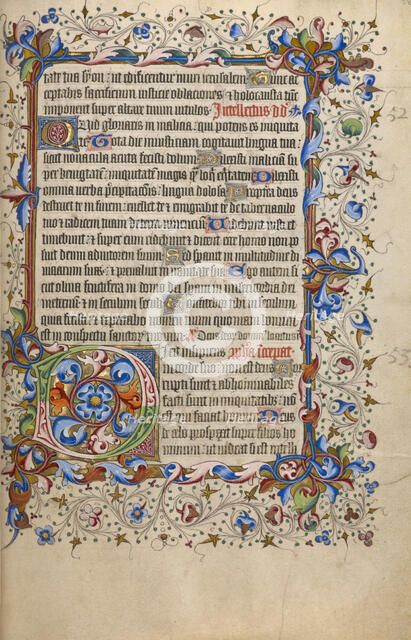 tate tua syon: ut edificentur muri ierusalem Tunc ac
ceptabis sacrificium iusticie oblaciones & holocausta tunc
imponent super altare tuum vitulos Intellectus dd
Quid gloriaris in malicia: qui potens es iniquitate
Tota die iniusticiam cogitauit lingua tua:
sicut nouacula acuta fecisti dolum Dilexisti maliciam su
per benignitatem: iniquitatem magis quam loqui equitatem Dilexisti
omnia verba precipitacionis: lingua dolosa Propterea deus
destruet te in finem: euellet te & emigrabit te de tabernaculo
tuo & radicem tuam de terra viuencium Videbunt iusti et
timebunt: & super eum ridebunt & dicent ecce homo non po
suit deum adiutorem suum Sed sperauit in multitudine di
uiciarum suarum: & preualuit in vanitate sua Ego autem si
cut oliua fructifera in domo dei speraui in misericordia dei
in eternum: & in seculum seculi Confitebor tibi in seculum
quia fecisti: & expectabo nomen tuum quoniam bonum
est in conspectu sanctorum tuorum
Dixit insipiens
in corde suo: non est deus Cor
rupti sunt & abhominabiles
facti sunt in iniquitatibus: non
est qui faciat bonum Deus
de celo prospexit super filios ho
minum: ut uideat si est intelli
52
53